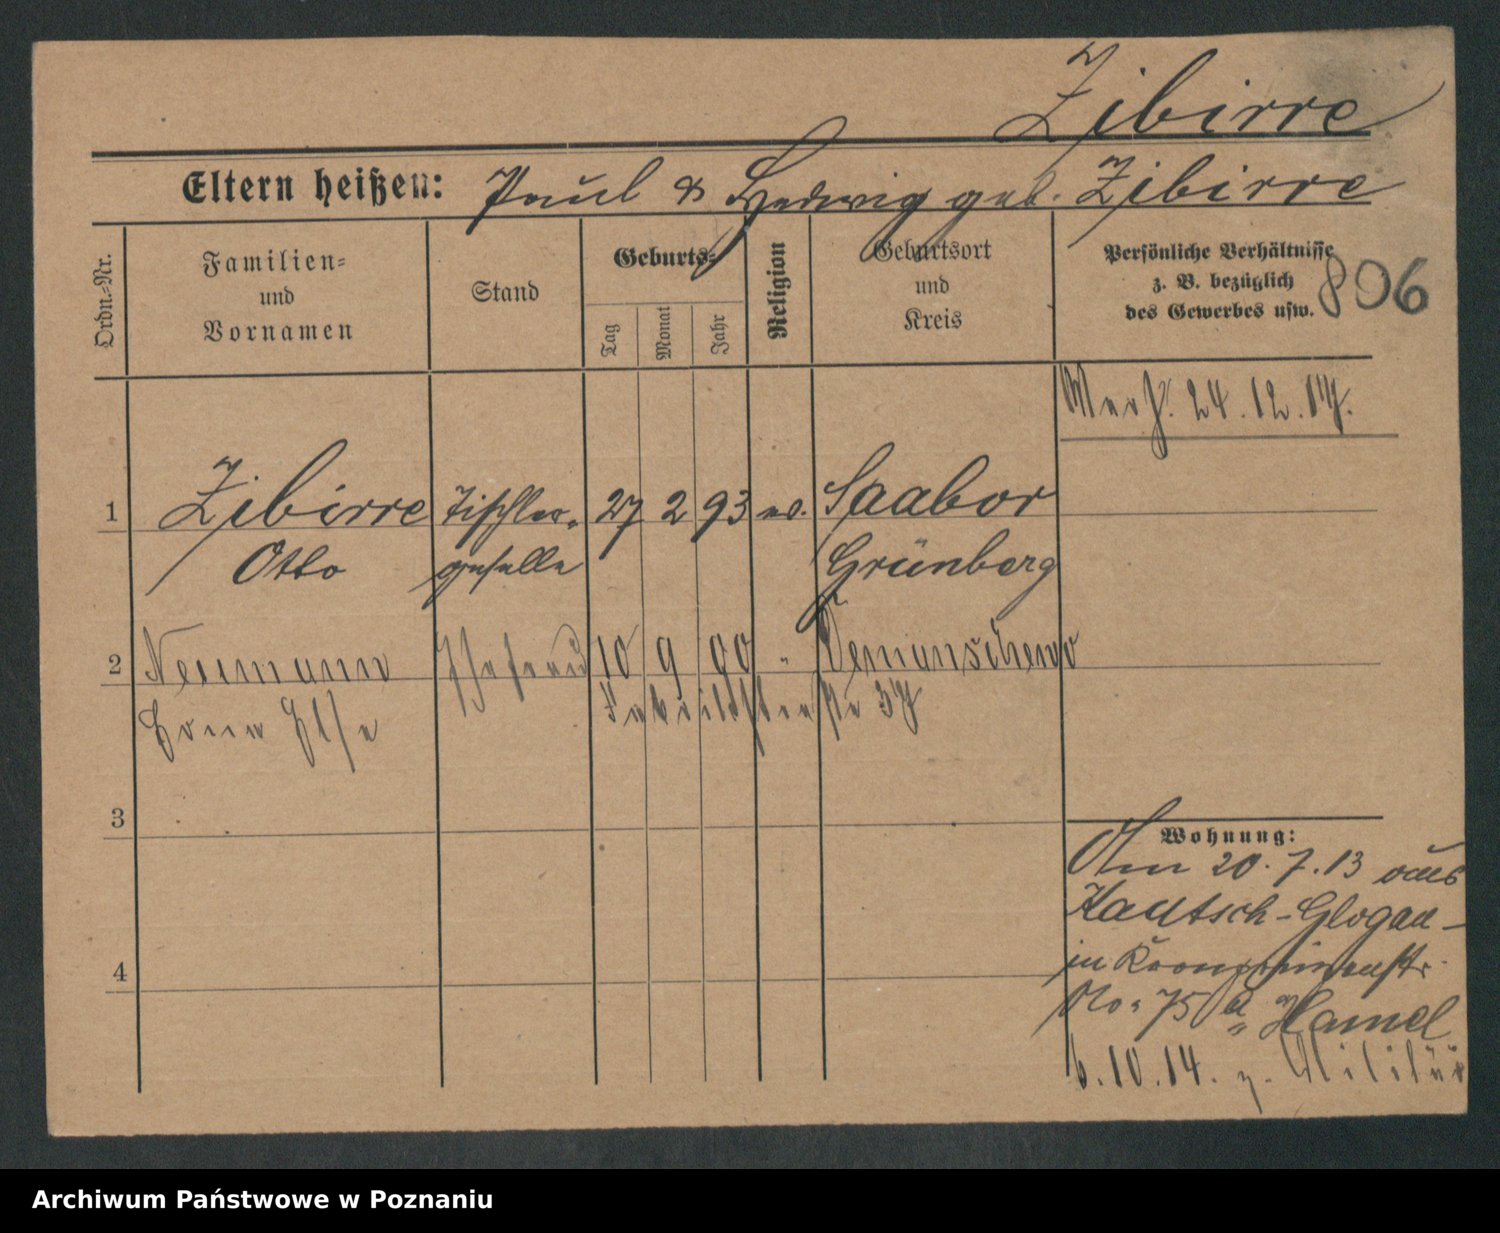 Zibirre
Eltern heißen: Paul & Hedwig geb. Zibirre
Ordn.-Nr.
Familien-
und
Vornamen
Stand
Geburts-
Tag
Monat
Jahr
Religion
Geburtsort
und
Kreis
Persönliche Verhältnisse
z. B. bezüglich
des Gewerbes usw.
806
24.12.17.
1 Zibirre Tischler- 27 2 93 ev. Saabor
Otto geselle Grünberg
2 Neumann Ehefrau 10 9 90 "
Else 37
3
4
Wohnung:
Am 20.7.13 aus
Kautsch-Glogau-
in Kronprinzenstr.
No. 75 a Hamel
6.10.14. z. Militär
Archiwum Państwowe w Poznaniu